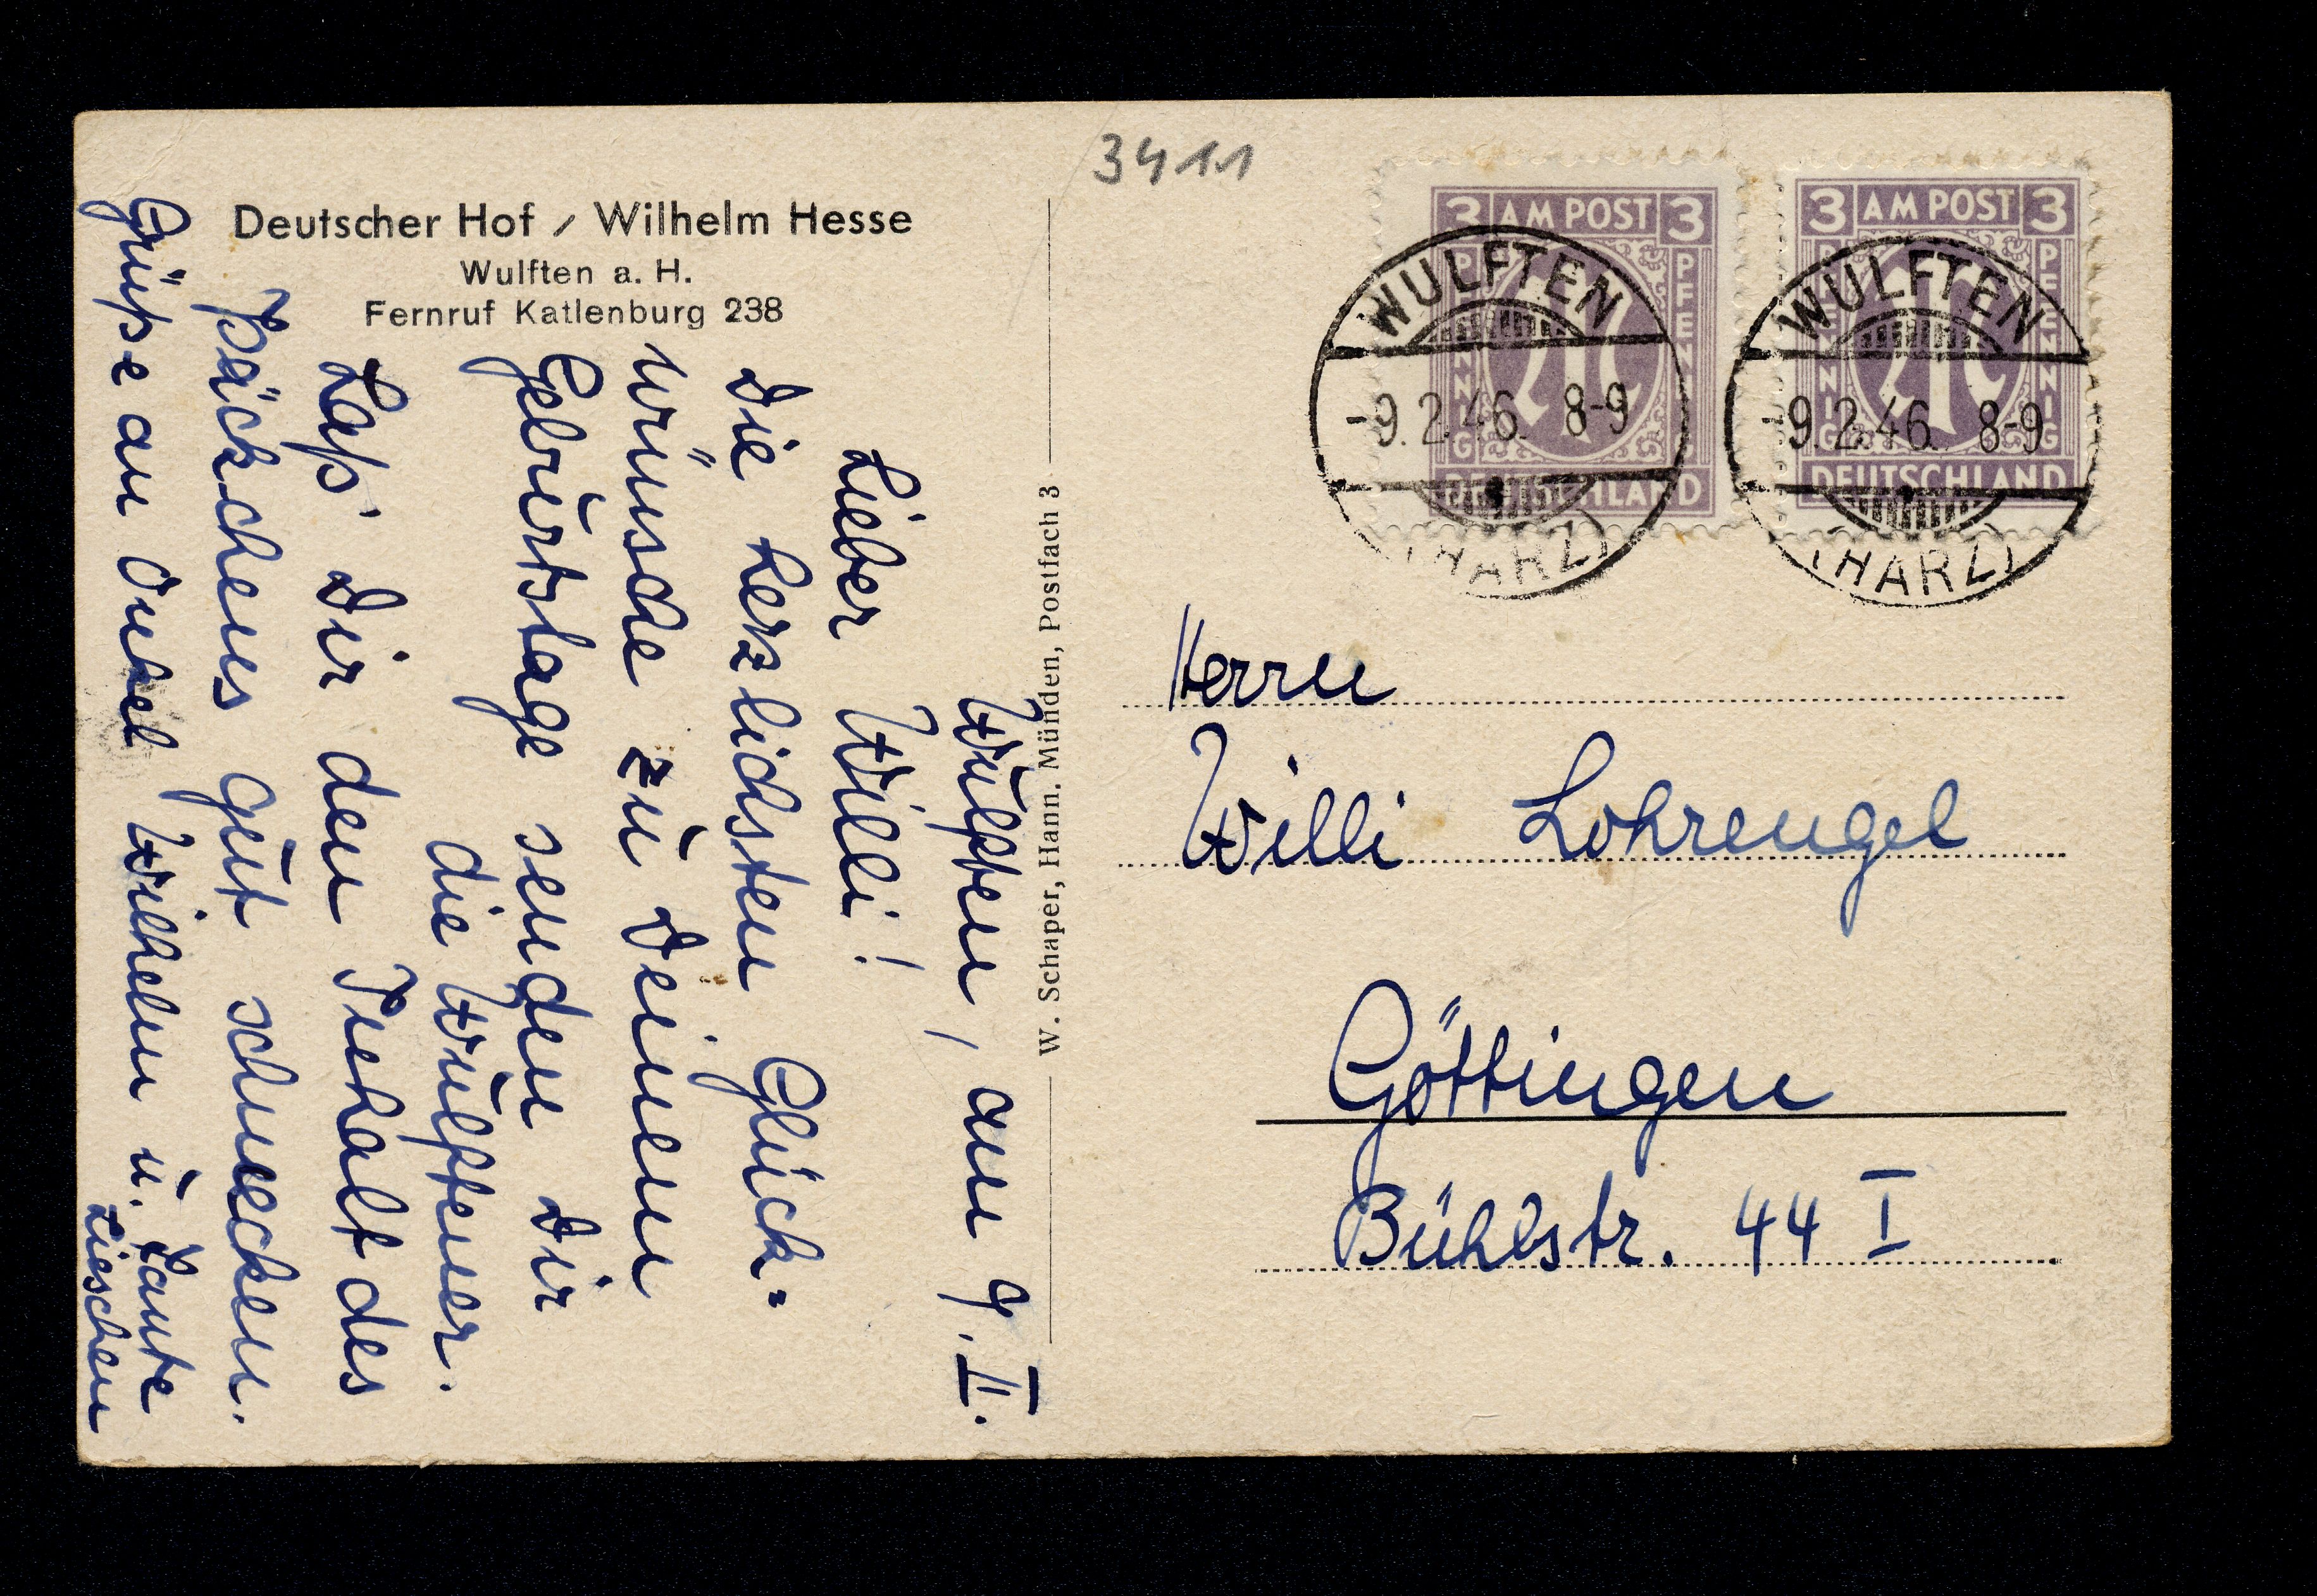 Deutscher Hof / Wilhelm Hesse
Wulften a. H.
Fernruf Katlenburg 238
Wulften, am 9. II.
Lieber Willi!
Die herzlichsten Glück-
wünsche zu Deinem
Geburtstage senden Dir
die Wulftener.
Laß Dir den Inhalt des
Päckchens gut schmecken.
Grüße an Onkel Wilhelm u. Tante
Lieschen
W. Schaper, Hann. Münden, Postfach 3
3411
3 AM POST 3
PFENNIG
PFENNIG
DEUTSCHLAND
3 AM POST 3
PFENNIG
PFENNIG
DEUTSCHLAND
WULFTEN
-9.2.46. 8-9
(HARZ)
WULFTEN
-9.2.46. 8-9
(HARZ)
Herrn
Willi Lohrengel
Göttingen
Bühlstr. 44 I